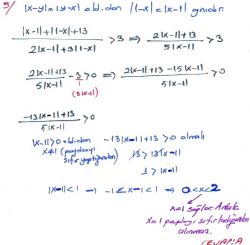 5/ |x-y|=|y-x| olduğundan |1-x|=|x-1| aynıdır.
|x-1|+|1-x|+13 / 2|x-1|+3|1-x| > 3 ⇒ 2|x-1|+13 / 5|x-1| > 3
2|x-1|+13 / 5|x-1| - 3/1 > 0 ⇒ 2|x-1|+13-15|x-1| / 5|x-1| > 0
(5|x-1|)
-13|x-1|+13 / 5|x-1| > 0
|x-1|>0 olduğundan -13|x-1|+13>0 olmalı
x≠1 (paydayı sıfır yaptığından) 13 > 13|x-1|
1 > |x-1|
|x-1|<1 ⇒ -1<x-1<1 ⇒ 0<x<2
x=1 sağlar. Ancak
x=1 paydayı sıfır yaptığından
alınmaz.
CEVAP: A